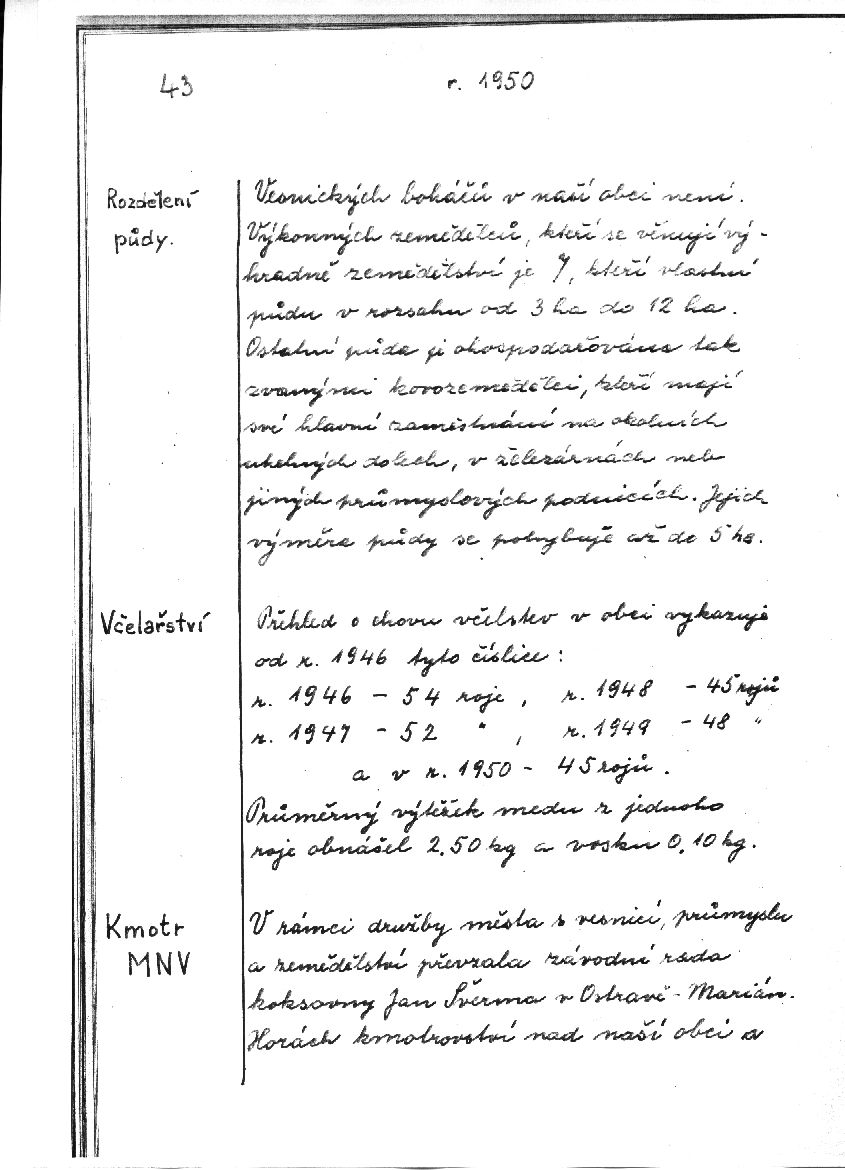 43
r. 1950
Rozdělení
půdy.
Vesnických boháčů v naší obci není.
Výkonných zemědělců, kteří se věnují vý-
hradně zemědělství je 7, kteří vlastní
půdu v rozsahu od 3 ha do 12 ha.
Ostatní půda je obhospodařována tak
zvanými kovozemědělci, kteří mají
své hlavní zaměstnání na okolních
uhelných dolech, v železárnách nebo
jiných průmyslových podnicích. Jejich
výměra půdy se pohybuje až do 5 ha.
Včelařství
Přehled o chovu včelstev v obci vykazuje
od r. 1946 tyto číslice:
r. 1946 - 54 roje, r. 1948 - 45 rojů
r. 1947 - 52 " , r. 1949 - 48 "
a v r. 1950 - 45 rojů.
Průměrný výtěžek medu z jednoho
roje obnášel 2,50 kg a vosku 0,10 kg.
Kmotr
MNV
V rámci družby města s vesnicí, průmyslu
a zemědělství převzala závodní rada
koksovny Jan Šverma v Ostravě-Marián.
Horách kmotrovství nad naší obcí a